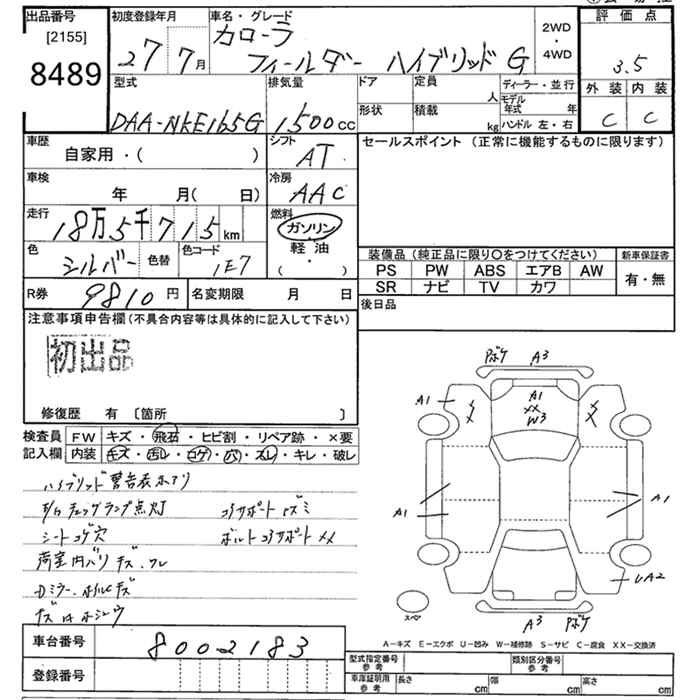 出品番号
[2155]
8489
初度登録年月
27 7月
車名・グレード
カローラ
フィールダー ハイブリッド G
2WD
・
4WD
評価点
3.5
外装 内装
C C
型式
DAA-NKE165G
排気量
1500cc
ドア
形状
定員 人
積載 kg
ディーラー・並行
モデル年式 年
ハンドル 左・右
車歴
自家用・( )
シフト
AT
セールスポイント (正常に機能するものに限ります)
車検
年 月( 日)
冷房
AAC
走行
18万5千715km
燃料
ガソリン
軽油
( ・ )
色
シルバー
色替
色コード
1E7
装備品 (純正品に限り○をつけてください)
PS PW ABS エアB AW
SR ナビ TV カワ
新車保証書
有・無
R券 9810円
名変期限 月 日
後日品
注意事項申告欄(不具合内容等は具体的に記入して下さい)
初出品
修復歴 有 〔箇所 〕
検査員
記入欄
FW キズ・飛石・ヒビ割・リペア跡・×要
内装 キズ・汚レ・コゲ・穴・スレ・キレ・破レ
ハイブリッド警告表示アリ
チェックランプ点灯
コアサポートズミ
シートコゲ穴
ボルトコアサポートメメ
荷室内バリキズ、ワレ
Dミラー、ホイルキズ
ボケ A3
A1
A1
XX
W3
A1
A1
UA2
スペ
A3 ボケ
A-キズ E-エクボ U-凹み W-補修跡 S-サビ C-腐食 XX-交換済
車台番号 8002183
登録番号
型式指定番号 参考
類別区分番号 参考
車庫証明用 参考
長さ cm
幅 cm
高さ cm